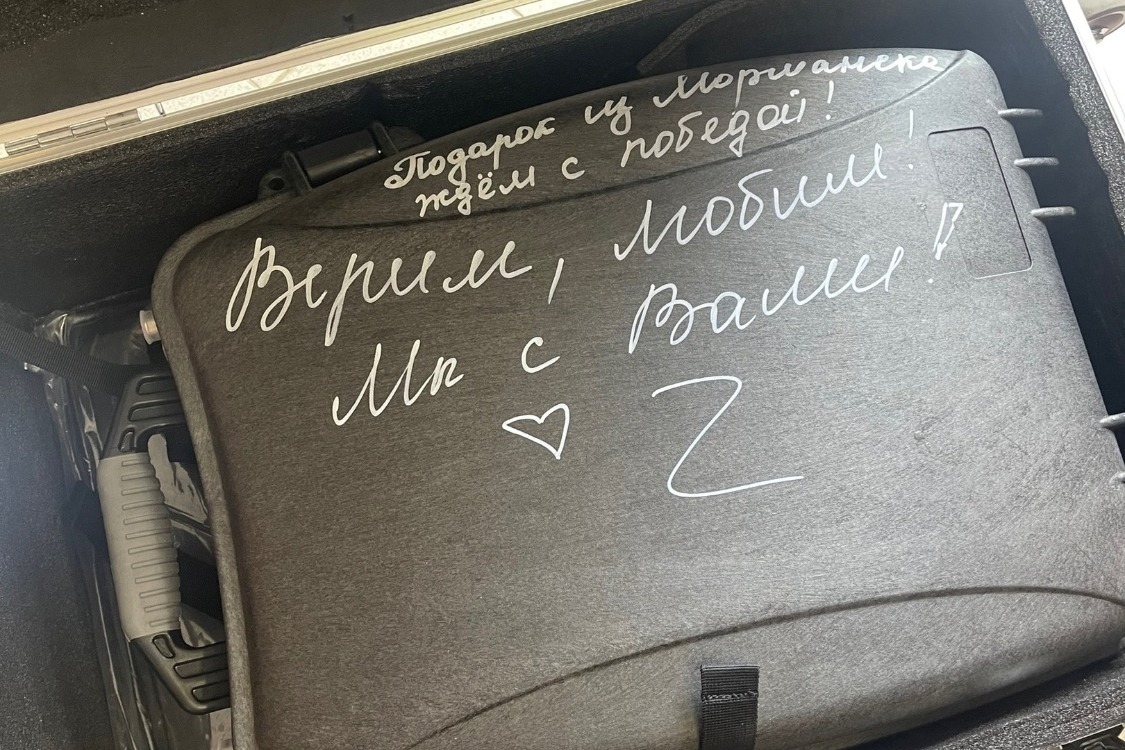 Подарок из Моршанска
ждём с победой!
Верим, любим!
Мы с Вами!
Z